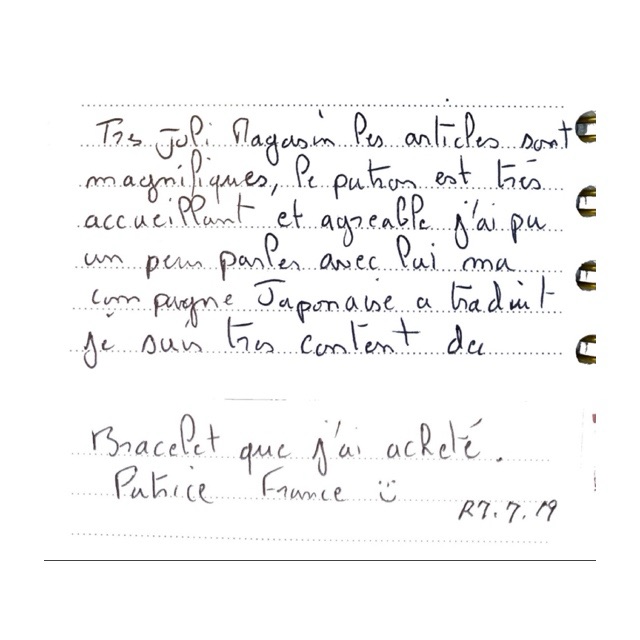 Très Joli Magasin les articles sont
magnifiques, le patron est très
accueillant et agreable j'ai pu
un peu parler avec lui ma
compagne Japonaise a traduit
je suis très content du
Bracelet que j'ai acheté.
Patrice France ☺
R7.7.19